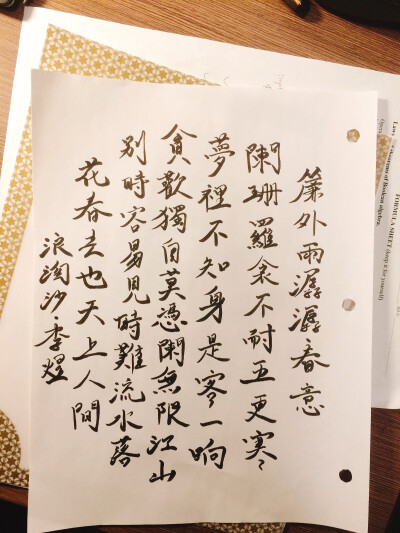 簾外雨潺潺春意
闌珊羅衾不耐五更寒
夢裡不知身是客一晌
貪歡獨自莫憑闌無限江山
別時容易見時難流水落
花春去也天上人間
浪淘沙·李煜
FORMULA SHEET (keep it for yourself)
Theorems of Boolean algebra